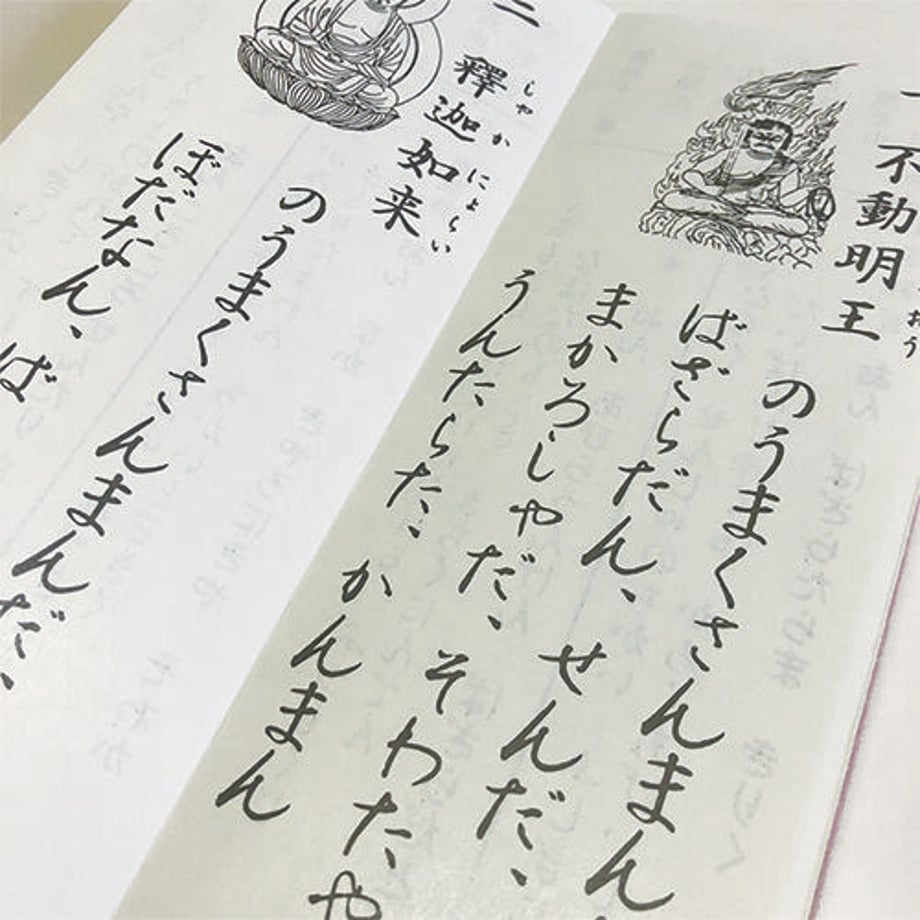 一 不動明王
おう
のうまくさんまん
ばざらだん、せんだ、
まかろしやだ、そわたや
うんたらた、かんまん
二 釋迦如来
しやかによらい
のうまくさんまんだ、
ぼだなん、ば